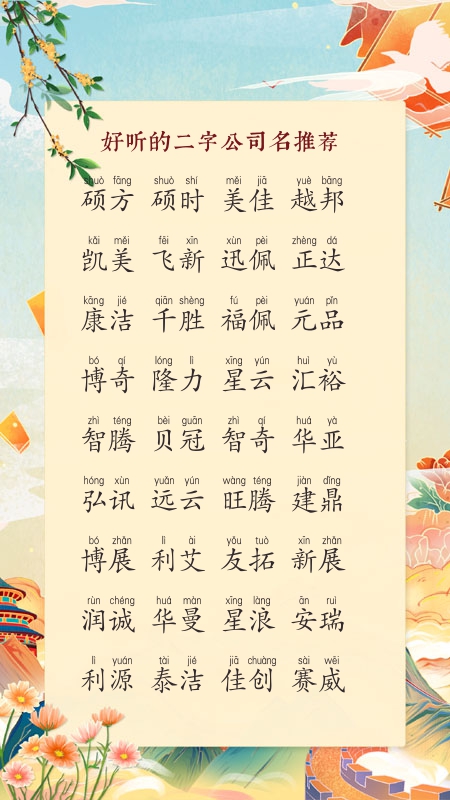 好听的二字公司名推荐
shuò fāng shuò shí měi jiā yuè bāng
硕方 硕时 美佳 越邦
kǎi měi fēi xīn xùn pèi zhèng dá
凯美 飞新 迅佩 正达
kāng jié qiān shèng fú pèi yuán pǐn
康洁 千胜 福佩 元品
bó qí lóng lì xīng yún huì yù
博奇 隆力 星云 汇裕
zhì téng bèi guān zhì qí huá yà
智腾 贝冠 智奇 华亚
hóng xùn yuǎn yún wàng téng jiàn dǐng
弘讯 远云 旺腾 建鼎
bó zhǎn lì ài yǒu tuò xīn zhǎn
博展 利艾 友拓 新展
rùn chéng huá màn xīng làng ān ruì
润诚 华曼 星浪 安瑞
lì yuán tài jié jiā chuàng sài wēi
利源 泰洁 佳创 赛威